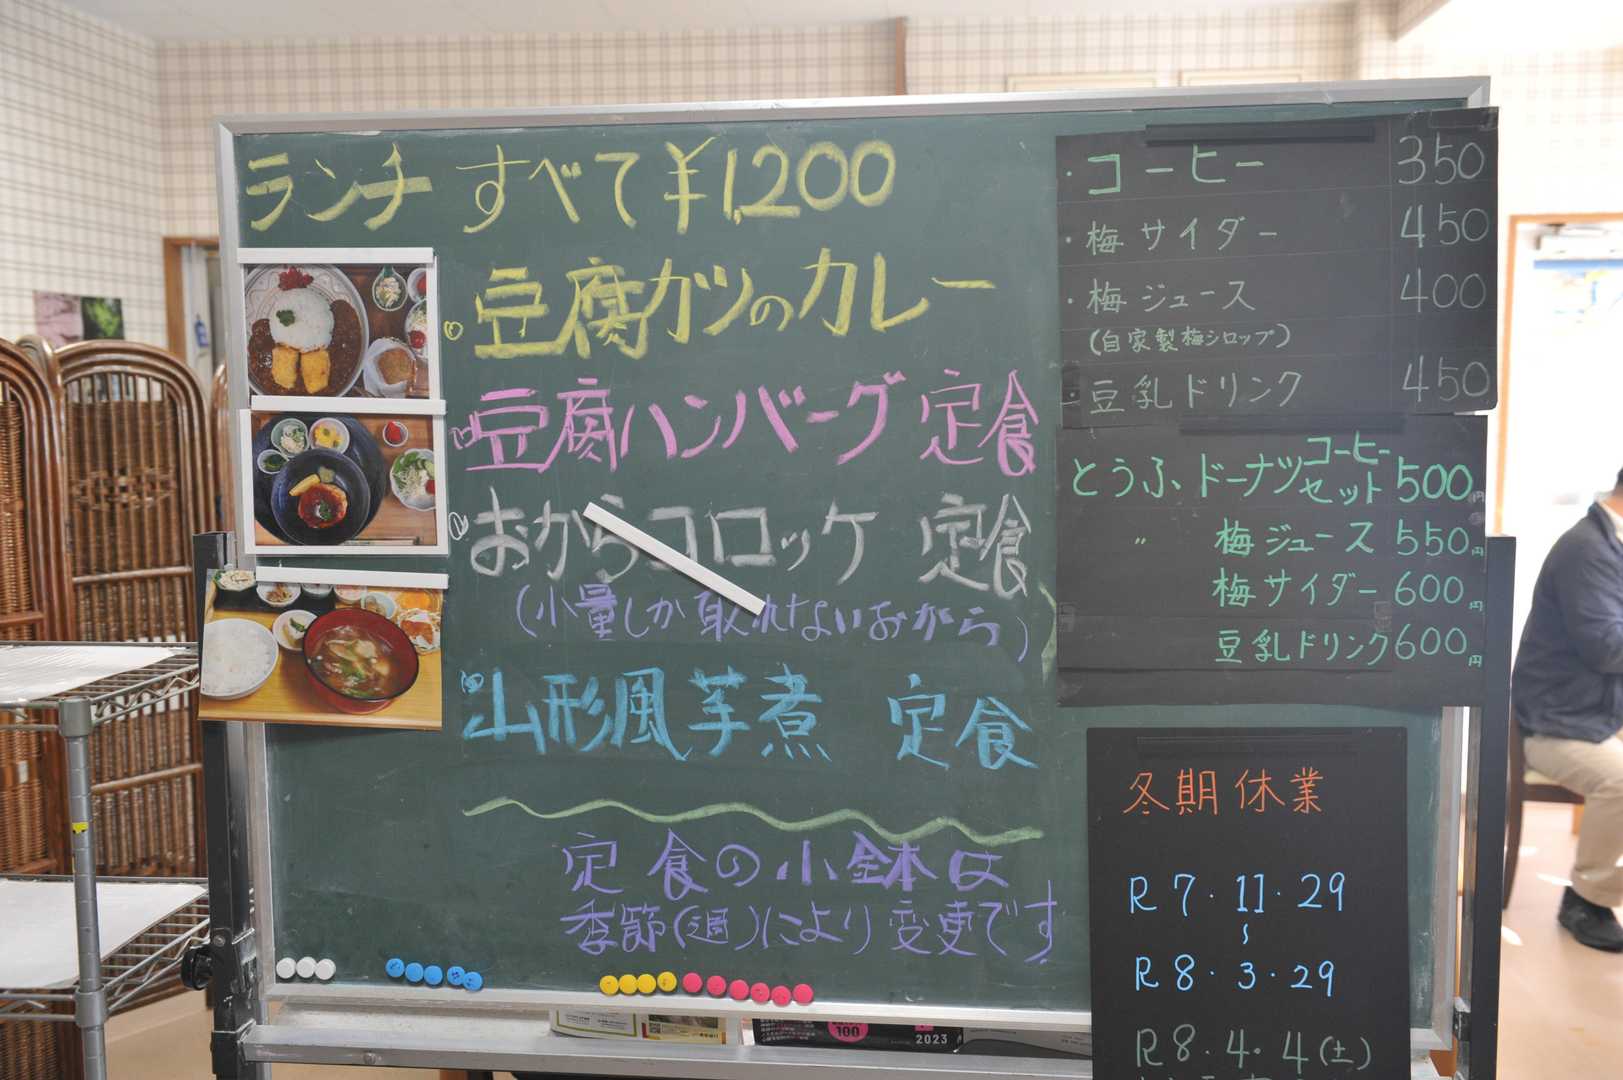 ランチ すべて ¥1,200
豆腐カツのカレー
豆腐ハンバーグ 定食
おからコロッケ 定食
(少量しか取れないおから)
山形風芋煮 定食
定食の小鉢は
季節(週)により変更です
・コーヒー 350
・梅サイダー 450
・梅ジュース 400
(自家製梅シロップ)
・豆乳ドリンク 450
とうふドーナツ コーヒーセット 500円
〃 梅ジュース 550円
梅サイダー 600円
豆乳ドリンク 600円
冬期休業
R7・11・29
～
R8・3・29
R8・4・4(土)
100
2023